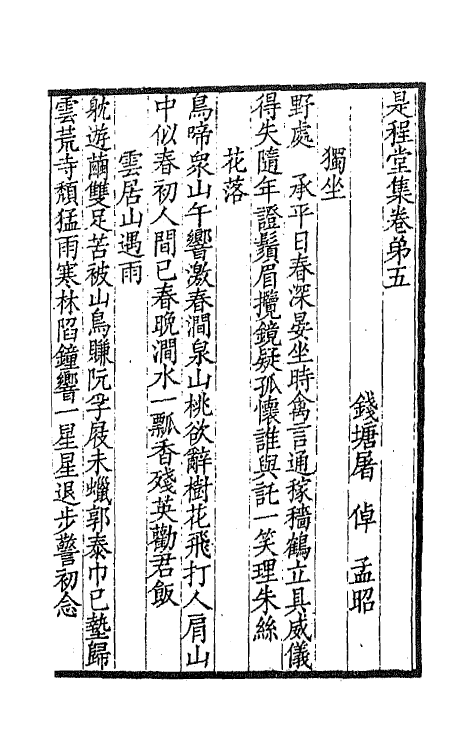 是程堂集卷弟五
錢塘屠倬孟昭
獨坐
野處承平日春深晏坐時禽言通稼穡鶴立具威儀
得失隨年證鬚眉攬鏡疑孤懷誰與託一笑理朱絲
花落
鳥啼衆山午響激春澗泉山桃欲辭樹花飛打人肩山
中似春初人間已春晚澗水一瓢香殘英勸君飯
雲居山遇雨
躭遊繭雙足苦被山鳥賺阮孚屐未蠟郭泰巾已墊歸
雲荒寺頹猛雨寒林陷鐘響一星星退步警初念